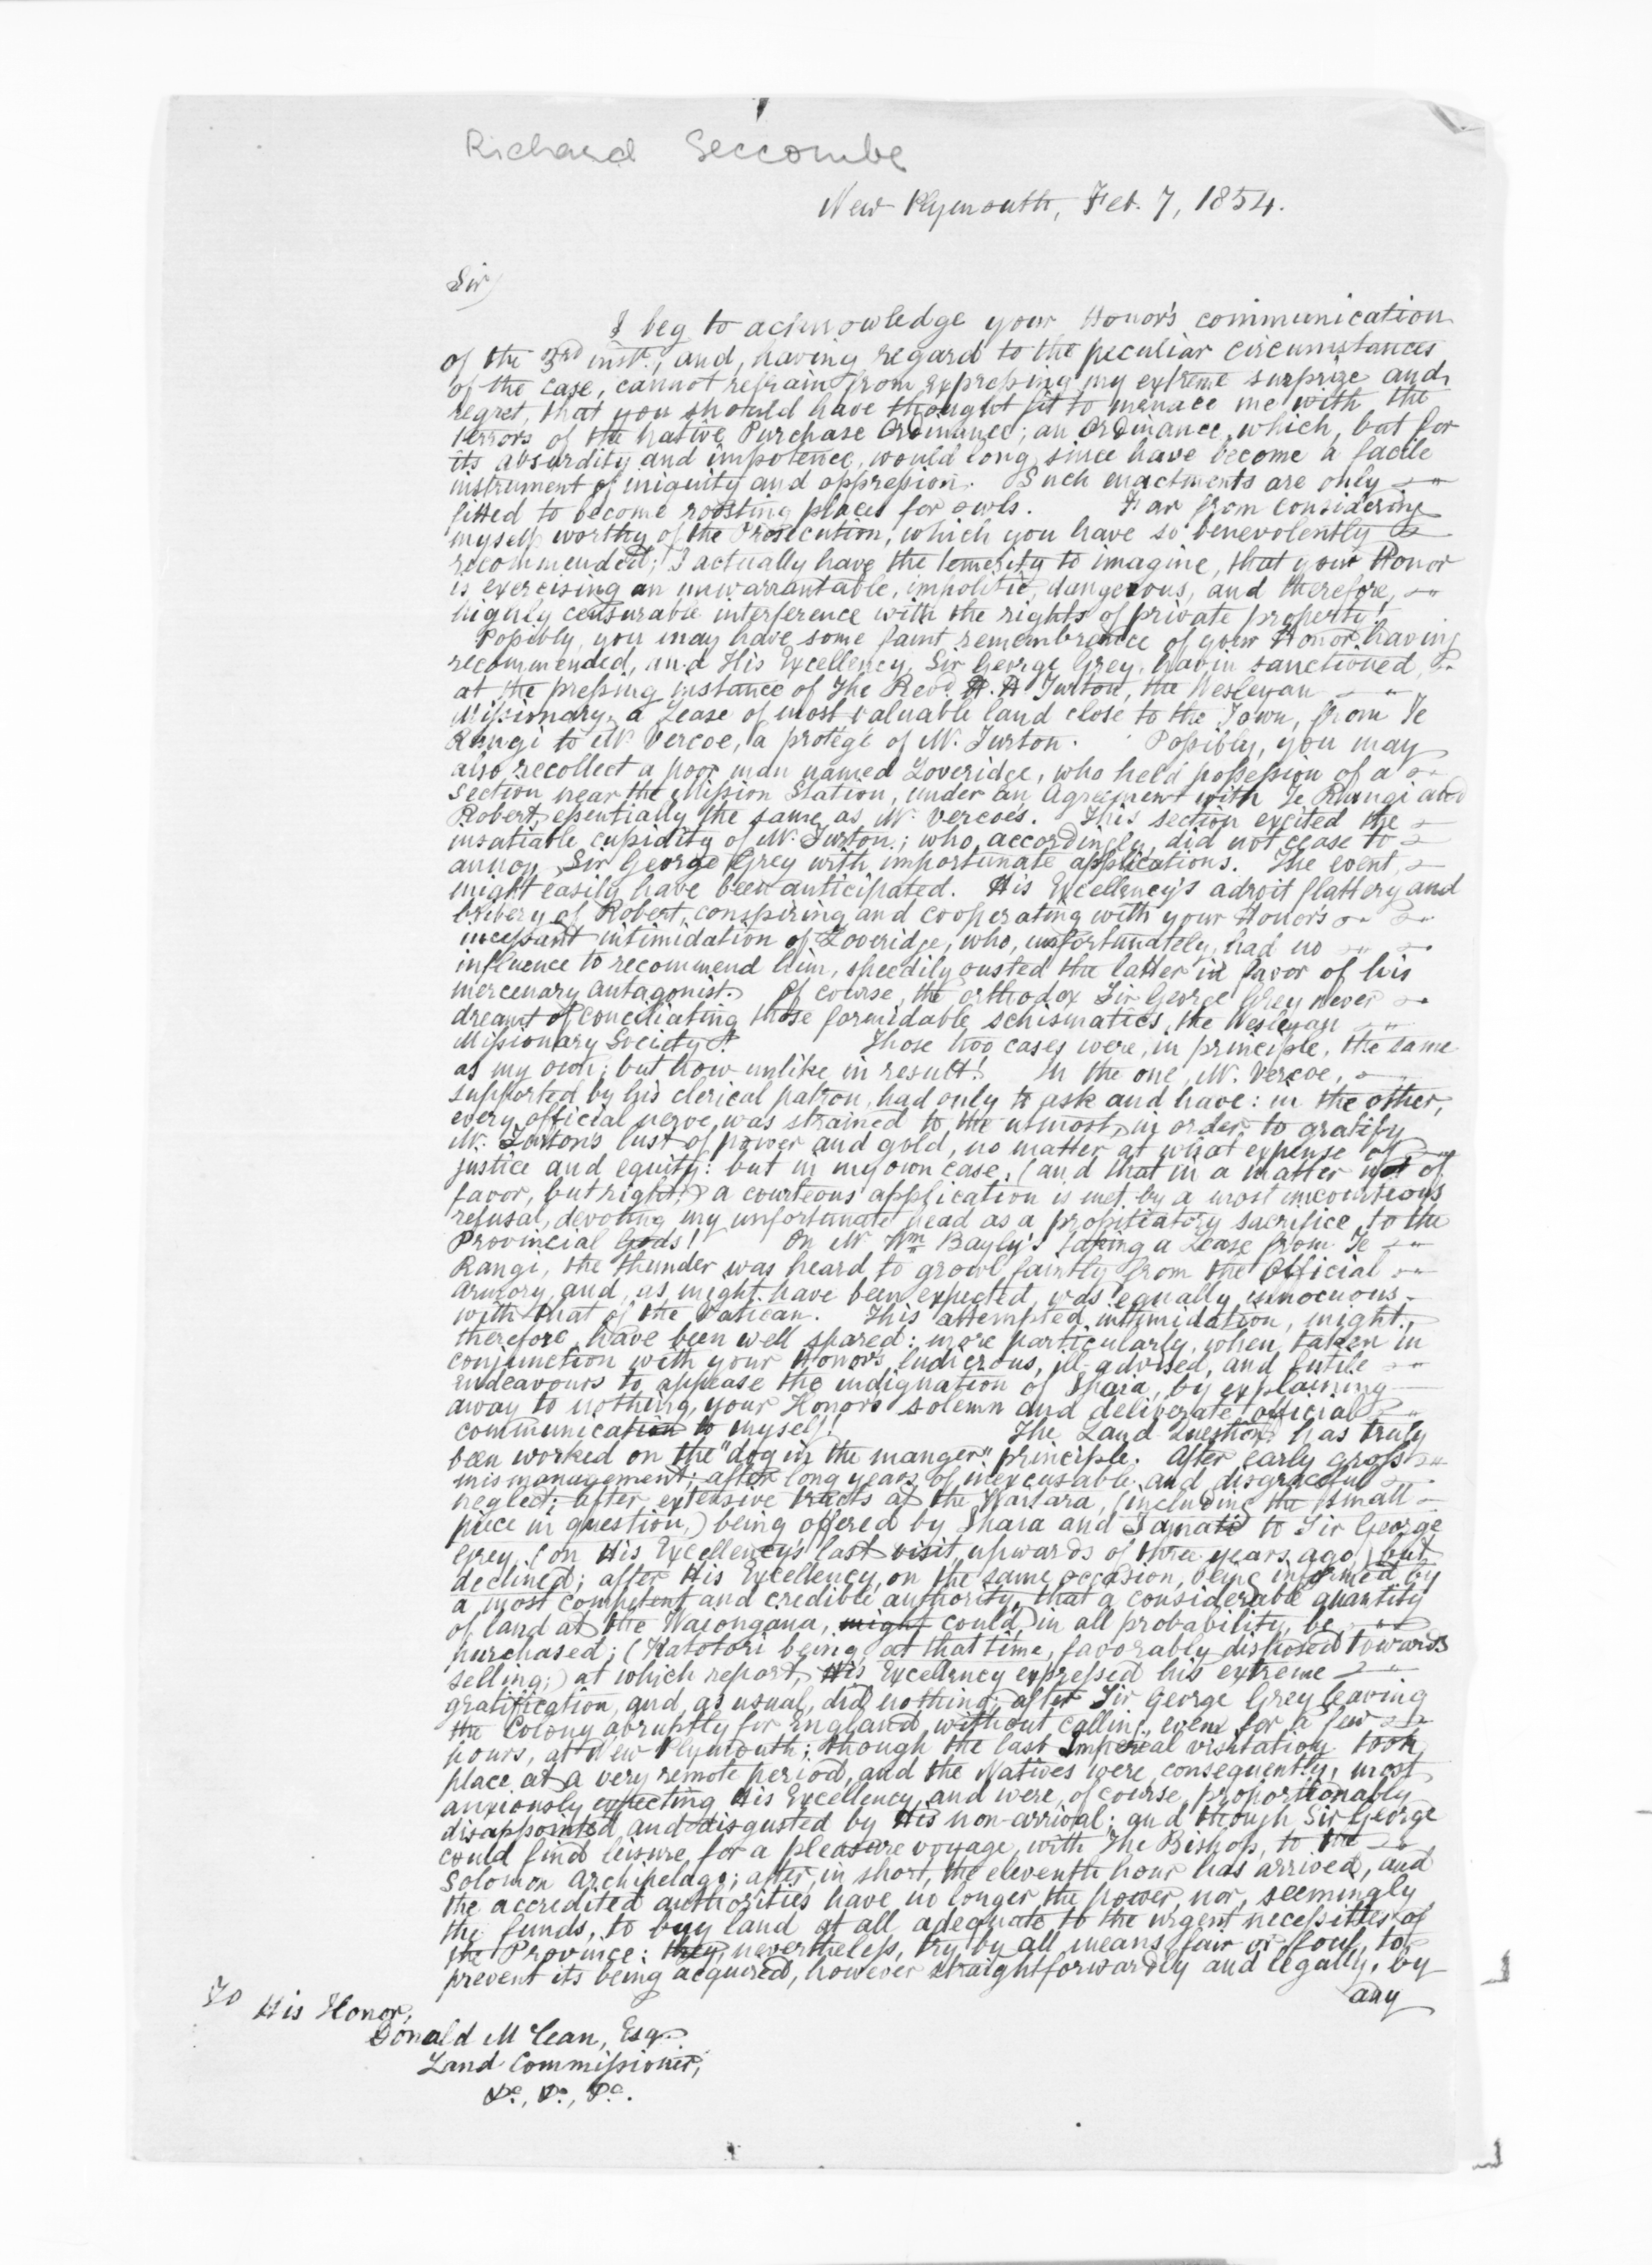 Richard Seccombe
New Plymouth, Feb. 7, 1854.
Sir,
I beg to acknowledge your Honor's communication
of the 3rd inst., and, having regard to the peculiar circumstances
of the case, cannot refrain from expressing my extreme surprize and
regret, that you should have thought fit to menace me with the
terrors of the Native Purchase Ordinance; an Ordinance, which, but for
its absurdity and impotence, would long since have become a facile
instrument of iniquity and oppression. Such enactments are only
fitted to become roosting places for owls. Far from considering
myself worthy of the Prosecution, which you have so benevolently
recommended; I actually have the temerity to imagine, that your Honor
is exercising an unwarrantable, impolitic, dangerous, and therefore,
highly censurable interference with the rights of private property!
Possibly, you may have some faint remembrance of your Honor having
recommended, and His Excellency, Sir George Grey, havin sanctioned,
at the pressing instance of The Revd. H. H. Turton, the Wesleyan
Missionary, a Lease of most valuable land close to the Town, from Te
Rangi to Mr. Vercoe, a protégé of Mr. Turton. Possibly, you may
also recollect a poor man named Loveridge, who held possession of a
section near the Mission Station, under an Agreement with Te Rangi and
Robert, essentially the same as Mr. Vercoe's. This section excited the
insatiable cupidity of Mr. Turton; who, accordingly, did not cease to
annoy Sir George Grey with importunate applications. The event,
might easily have been anticipated. His Excellency's adroit flattery and
bribery of Robert, conspiring and cooperating with your Honor's
incessant intimidation of Loveridge, who, unfortunately, had no
influence to recommend him, speedily ousted the latter in favor of his
mercenary antagonist. Of course, the orthodox Sir George Grey never
dreamt of conciliating those formidable schismatics, the Wesleyan
Missionary Society!
Those two cases were, in principle, the same
as my own; but how unlike in result! In the one, Mr. Vercoe,
supported by his clerical patron, had only to ask and have: in the other,
every official nerve was strained to the utmost, in order to gratify
Mr. Turton's lust of power and gold, no matter at what expense of
justice and equity: but in my own case, (and that in a matter not of
favor, but right,) a courteous application is met by a most uncourteous
refusal, devoting my unfortunate head as a propitiatory sacrifice to the
Provincial Gods! On Mr. Wm. Bayly's taking a Lease from Te
Rangi, the thunder was heard to growl faintly from the Official
armory, and, as might have been expected, was equally innocuous
with that of the Vatican. This attempted intimidation, might,
therefore, have been well spared: more particularly, when taken in
conjunction with your Honor's ludicrous, ill-advised, and futile
endeavours to appease the indignation of Ihaia, by explaining
away to nothing, your Honor's solemn and deliberate official
communication to myself!
The Land Question has truly
been worked on the "dog in the manger" principle. After early gross
mismanagement; after long years of inexcusable and disgraceful
neglect; after extensive tracts at the Waitara, (including the small
piece in question,) being offered by Ihaia and Tamati to Sir George
Grey, (on His Excellency's last visit upwards of three years ago) but
declined; after His Excellency, on the same occasion, being informed by
a most competent and credible authority, that a considerable quantity
of land at the Waiongana, might could, in all probability, be
purchased; (Katotori being, at that time, favorably disposed towards
selling;) at which report, His Excellency expressed his extreme
gratification, and, as usual, did nothing; after Sir George Grey leaving
the Colony abruptly for England without calling, even for a few
hours, at New Plymouth; though the last Impereal visitation took
place at a very remote period, and the Natives were, consequently, most
anxiously expecting His Excellency, and were, of course, proportionably
disappointed and disgusted by His non-arrival; and though Sir George
could find leisure for a pleasure voyage, with The Bishop, to the
Solomon Archipelago; after, in short, the eleventh hour has arrived, and
the accredited authorities have no longer the power, nor, seemingly
the funds, to buy land at all adequate to the urgent necessities of
the Province; they, nevertheless, try, by all means fair or foul, to
prevent its being acquired, however straightforwardly and legally, by
any
To
His Honor,
Donald McLean, Esq.
Land Commissioner,
&c., &c., &c.